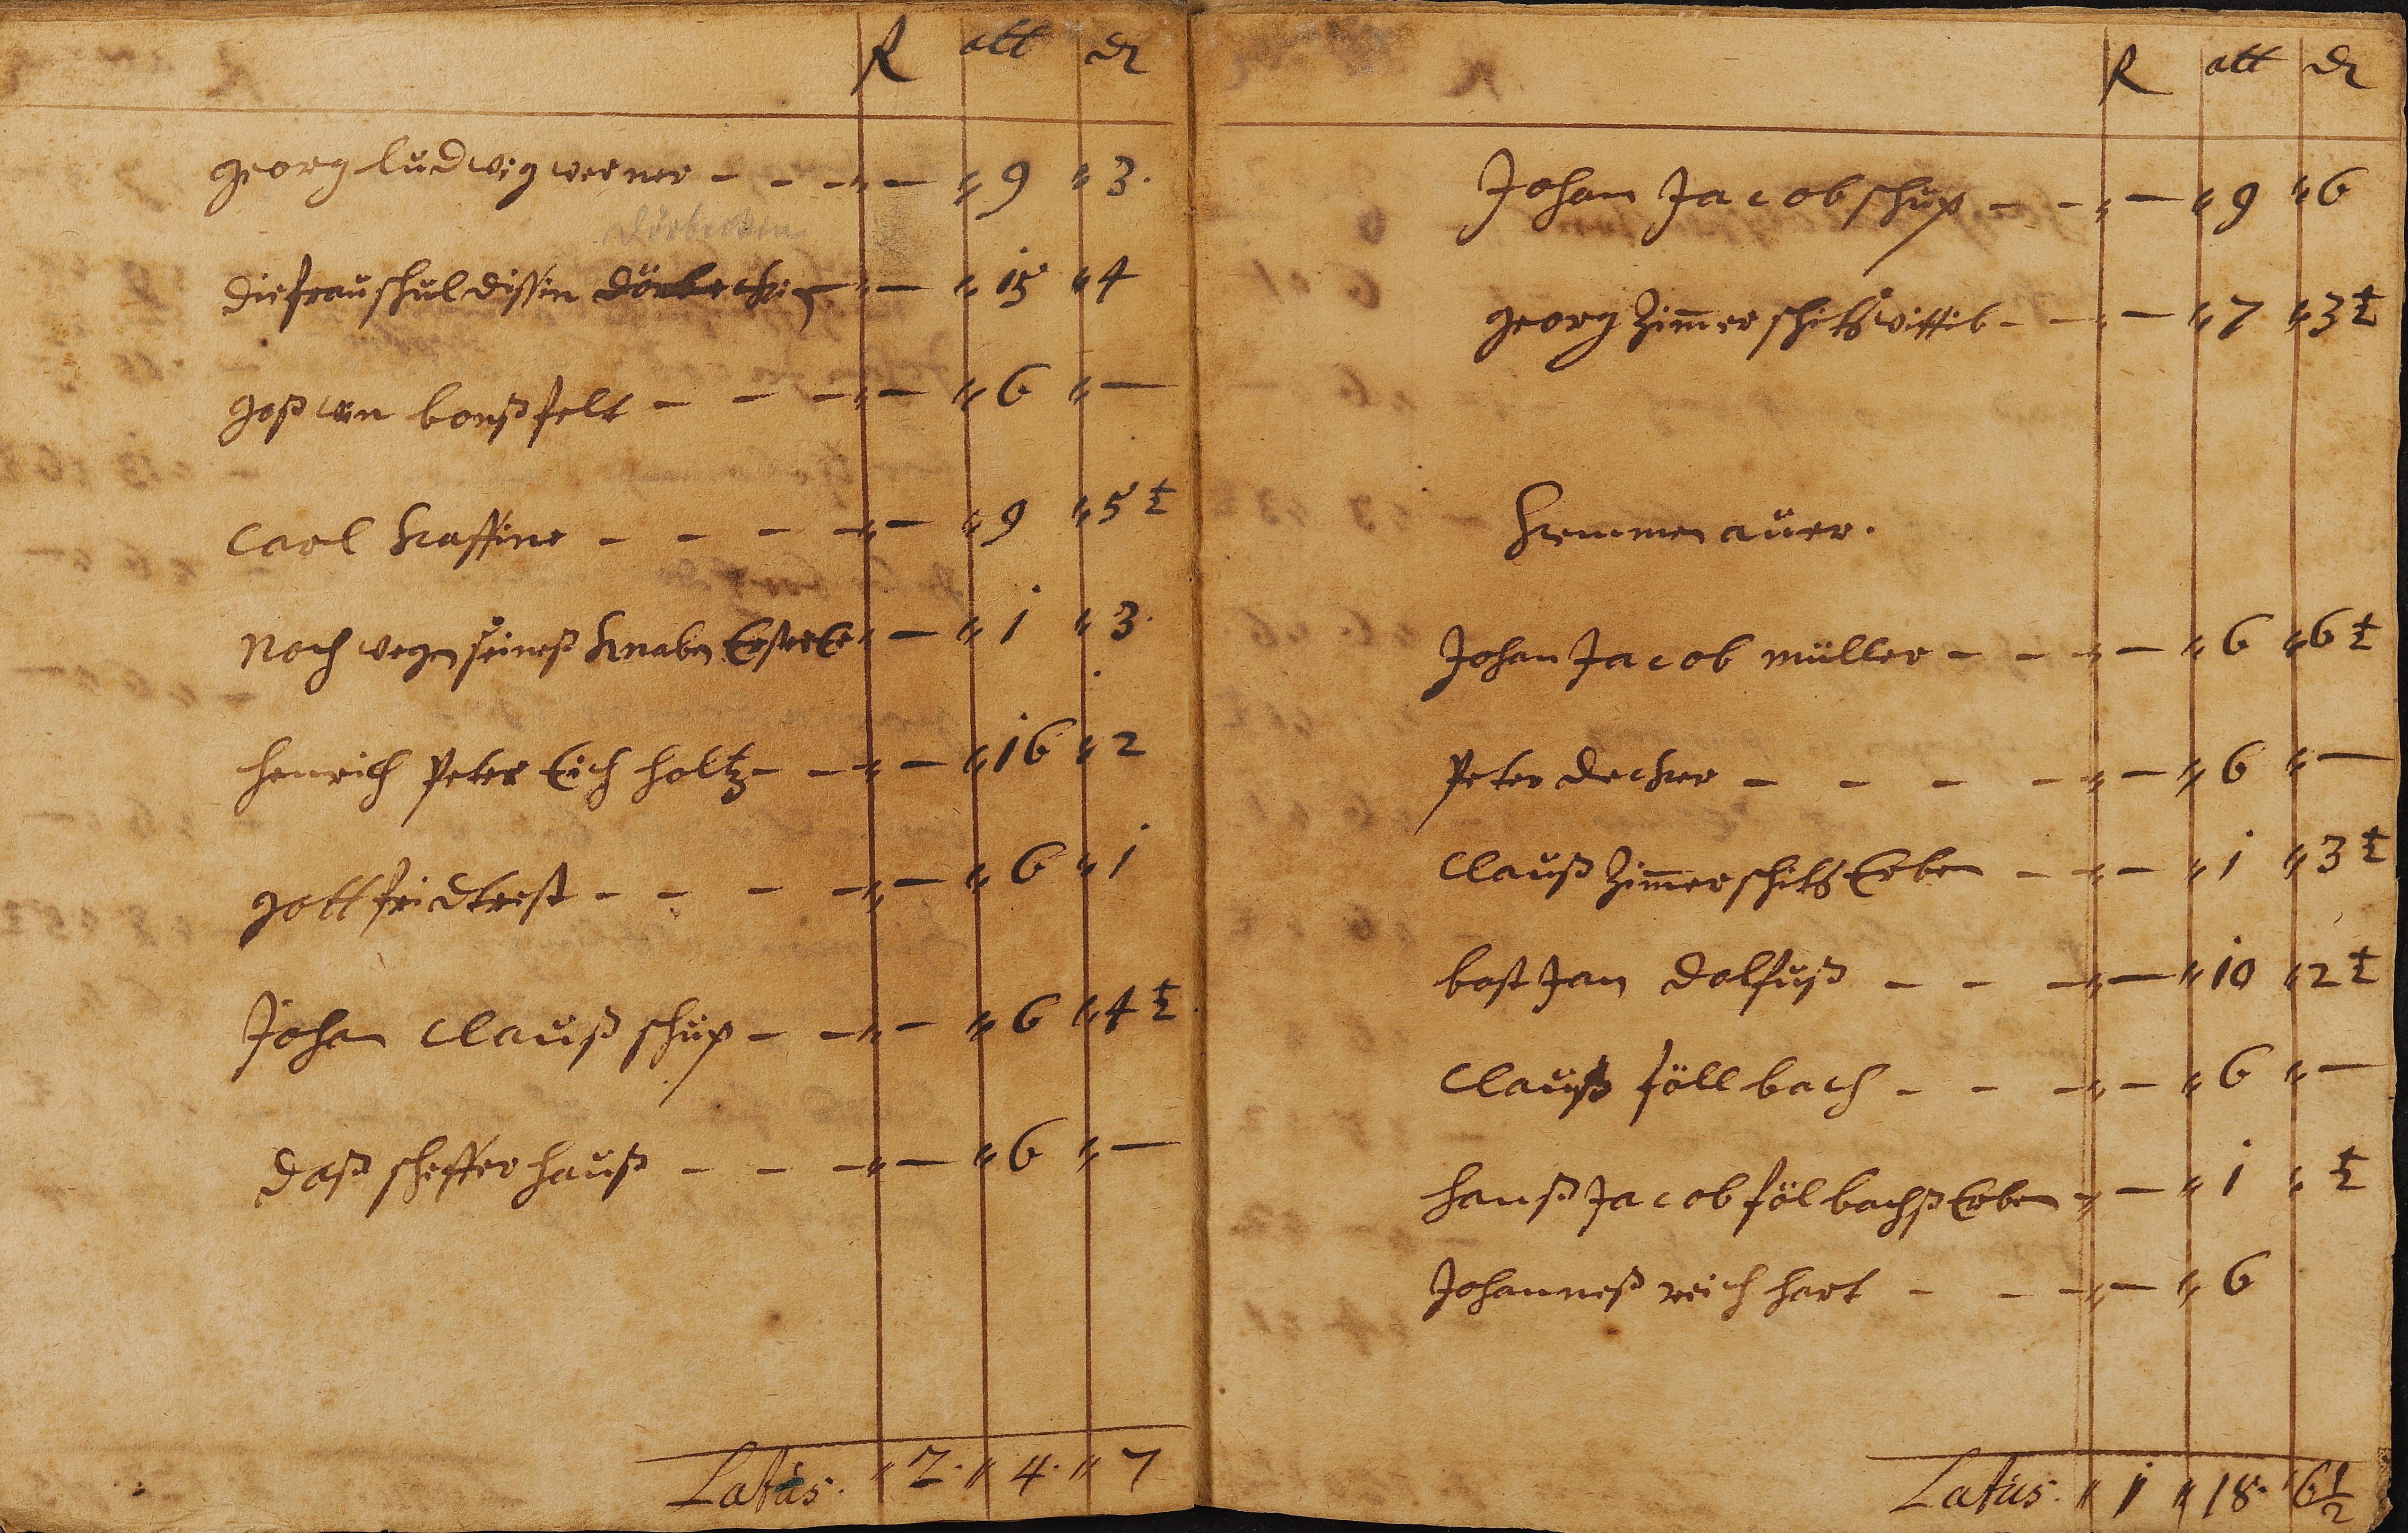 R att dz
Georg ludwig werner - - - „ — „ 9 „ 3.
die frau schuldissin - „ — „ 15 „ 4
Goßwin bonßfelt - - - „ — „ 6 „ —
Carl Kaffine - - - - „ — „ 9 „ 5 ½
Noch wegen seineß Knaben „ — „ 1 „ 3.
Henrich Peter Eichholtz - - „ — „ 16 „ 2
Gottfridt - - - - „ — „ 6 „ 1
Johan Clauß schup - - „ — „ 6 „ 4 ½
daß schefferhauß - - - „ — „ 6 „ —
Latus. „ 2. „ 4. „ 7
R att dz
Johan Jacob schup - - „ — „ 9 „ 6
Georg Zimmerschitß wittib - - „ — „ 7 „ 3 ½
Kemmenauer.
Johan Jacob müller - - - „ — „ 6 „ 6 ½
Peter decker - - - - „ — „ 6 „ —
Clauß Zimmerschitß Erben - - „ — „ 1 „ 3 ½
bast Jan dolfuß - - - „ — „ 10 „ 2 ½
Clauß föllbach - - - „ — „ 6 „ —
Hanß Jacob fölbachß Erben „ — „ 1 „ ½
Johanneß reichhart - - - „ — „ 6
Latus. „ 1 „ 18. „ 6½